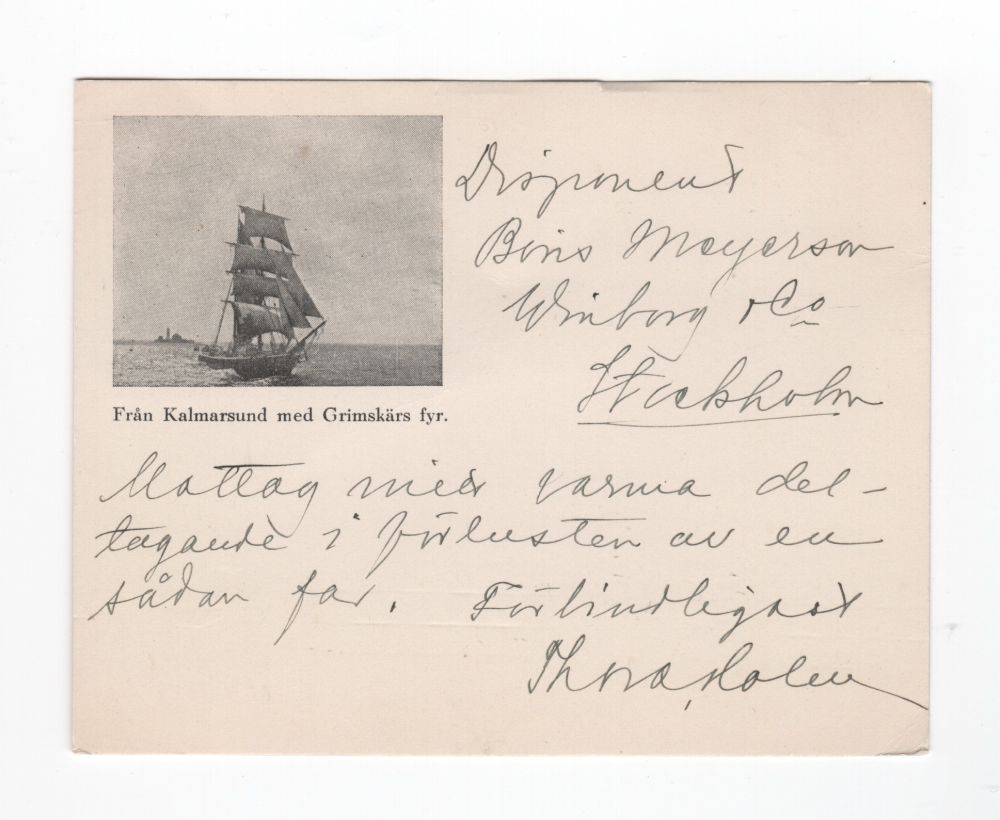 Disponent
Boris Meyerson
Winborg & Co
Stockholm
Från Kalmarsund med Grimskärs fyr.
Mottag mitt varma del-
tagande i förlusten av en
sådan far. Förbindligast
Thora Holm